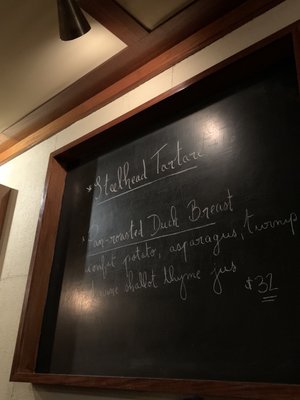 * Steelhead Tartare
* Pan-roasted Duck Breast
confit potato, asparagus, turnip
shallot thyme jus
$32